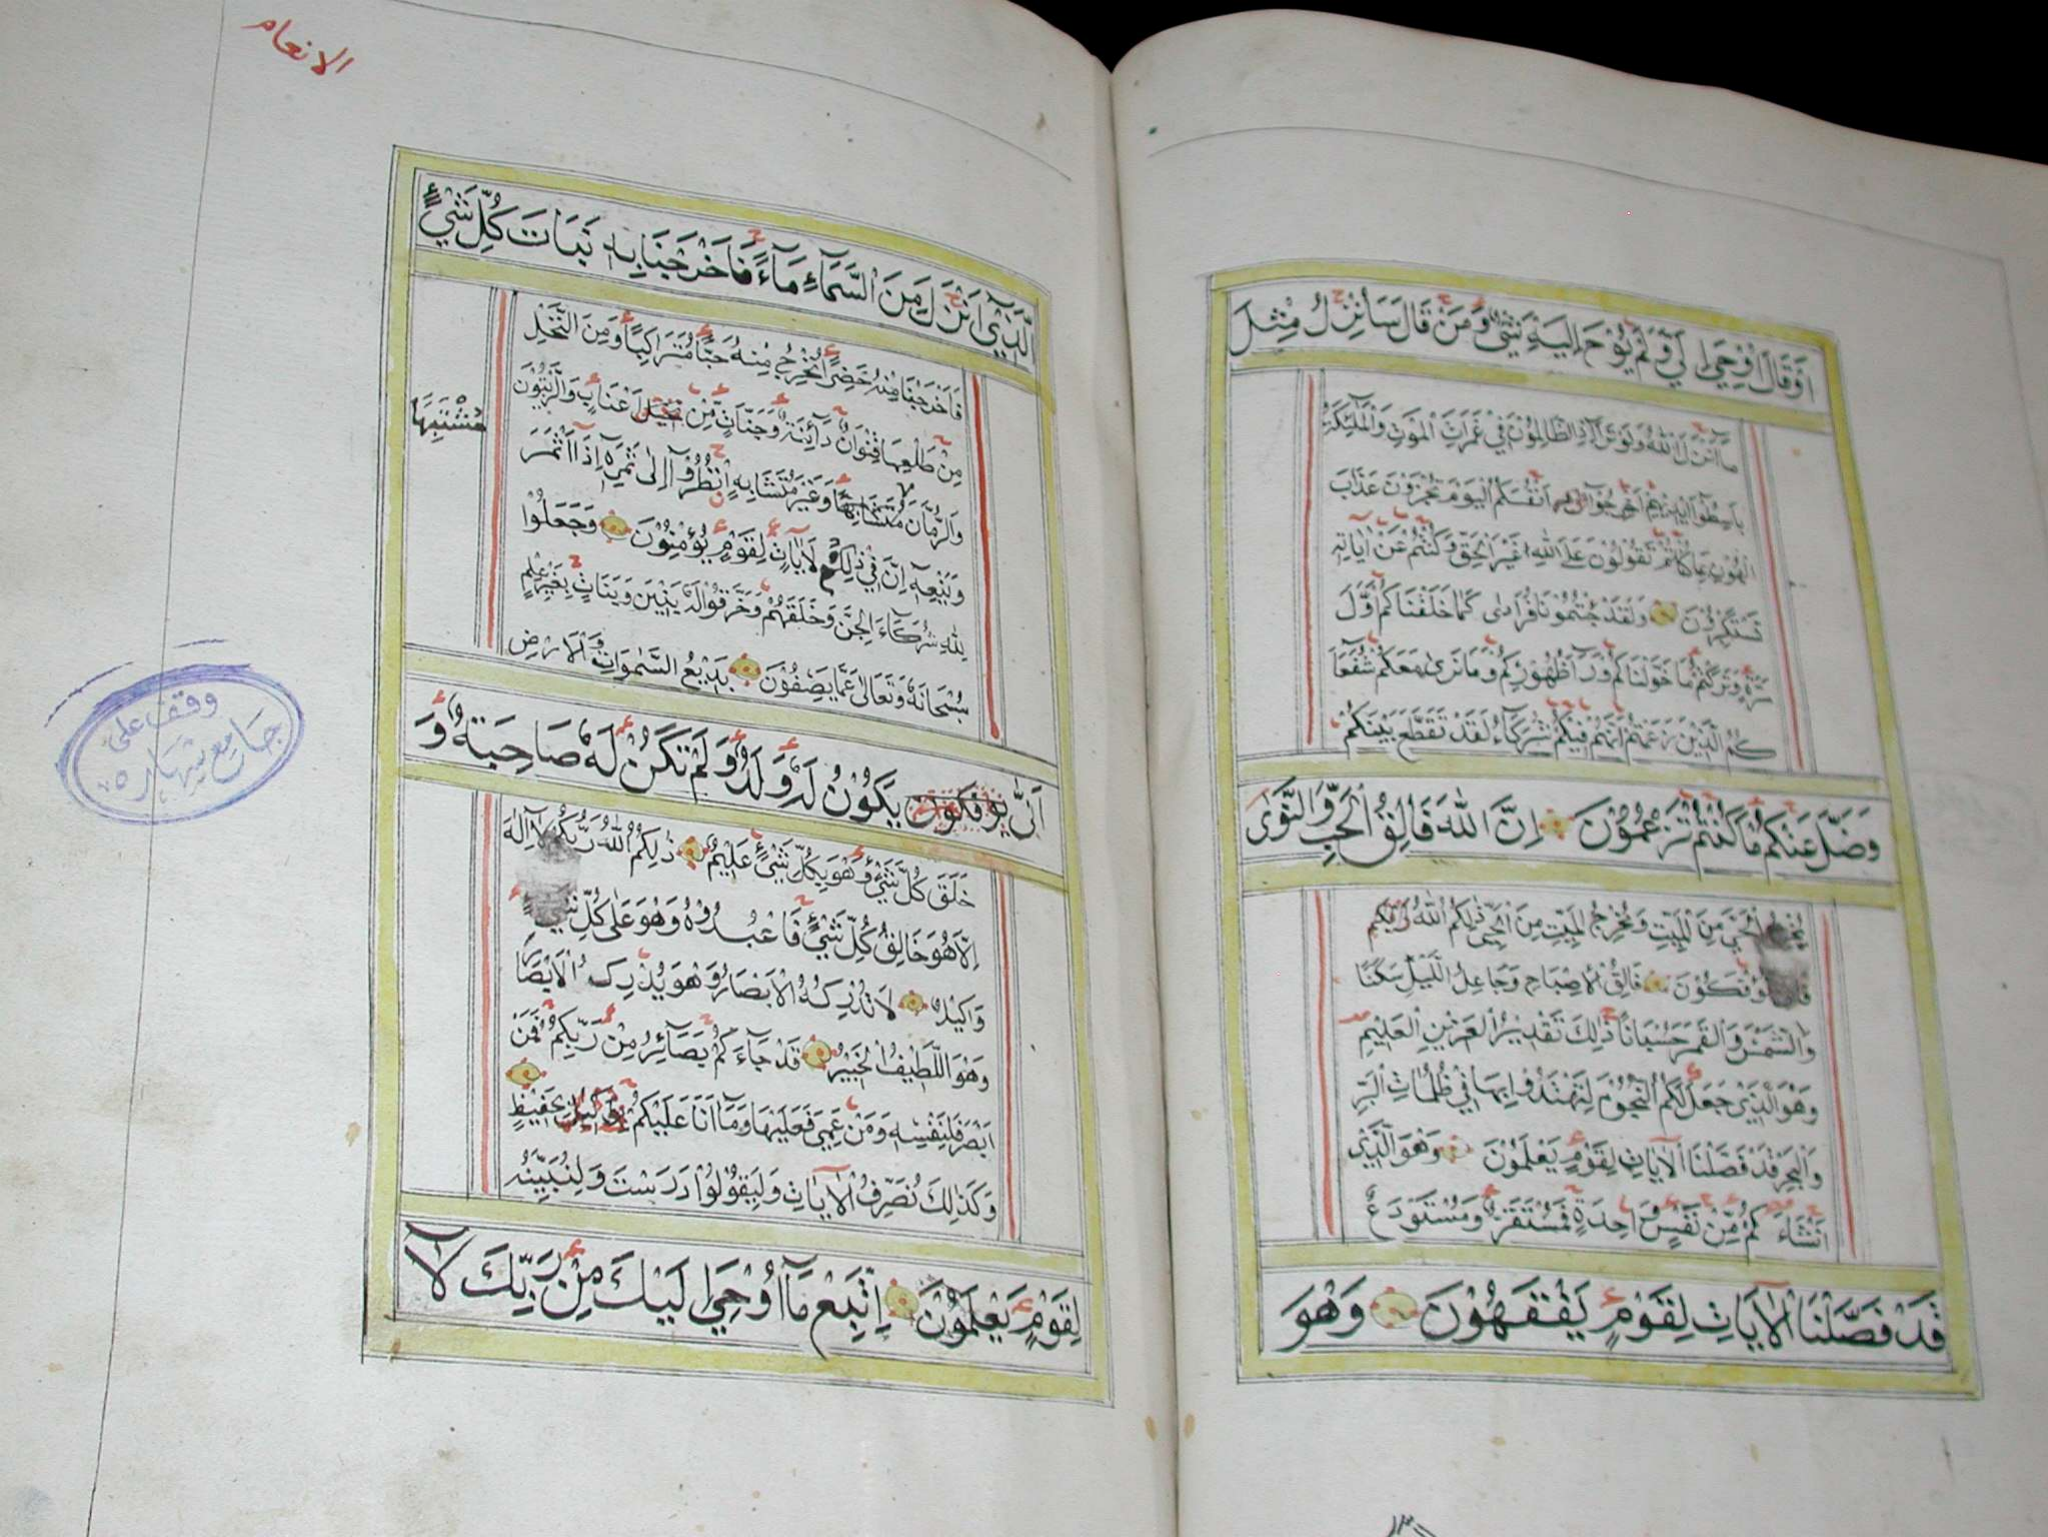 اَوْ قَالَ اُوْحِيَ اِلَيَّ وَلَمْ يُوْحَ اِلَيْهِ شَيْءٌ وَمَنْ قَالَ سَاُنْزِلُ مِثْلَ
مَآ اَنْزَلَ اللّٰهُ وَلَوْ تَرٰٓى اِذِ الظَّالِمُوْنَ فِيْ غَمَرَاتِ الْمَوْتِ وَالْمَلٰٓئِكَةُ
بَاسِطُوْٓا اَيْدِيْهِمْ اَخْرِجُوْٓا اَنْفُسَكُمْ اَلْيَوْمَ تُجْزَوْنَ عَذَابَ
الْهُوْنِ بِمَا كُنْتُمْ تَقُوْلُوْنَ عَلَى اللّٰهِ غَيْرَ الْحَقِّ وَكُنْتُمْ عَنْ اٰيَاتِهٖ
تَسْتَكْبِرُوْنَ وَلَقَدْ جِئْتُمُوْنَا فُرَادٰى كَمَا خَلَقْنَاكُمْ اَوَّلَ
مَرَّةٍ وَتَرَكْتُمْ مَا خَوَّلْنَاكُمْ وَرَآءَ ظُهُوْرِكُمْ وَمَا نَرٰى مَعَكُمْ شُفَعَآءَ
كُمُ الَّذِيْنَ زَعَمْتُمْ اَنَّهُمْ فِيْكُمْ شُرَكَآءُ لَقَدْ تَقَطَّعَ بَيْنَكُمْ
وَضَلَّ عَنْكُمْ مَا كُنْتُمْ تَزْعُمُوْنَ اِنَّ اللّٰهَ فَالِقُ الْحَبِّ وَالنَّوٰى
يُخْرِجُ الْحَيَّ مِنَ الْمَيِّتِ وَمُخْرِجُ الْمَيِّتِ مِنَ الْحَيِّ ذٰلِكُمُ اللّٰهُ رَبُّكُمْ
تُؤْفَكُوْنَ فَالِقُ الْاِصْبَاحِ وَجَاعِلُ اللَّيْلِ سَكَنًا
وَالشَّمْسَ وَالْقَمَرَ حُسْبَانًا ذٰلِكَ تَقْدِيْرُ الْعَزِيْزِ الْعَلِيْمِ
وَهُوَ الَّذِيْ جَعَلَ لَكُمُ النُّجُوْمَ لِتَهْتَدُوْا بِهَا فِيْ ظُلُمَاتِ الْبَرِّ
وَالْبَحْرِ قَدْ فَصَّلْنَا الْاٰيَاتِ لِقَوْمٍ يَعْلَمُوْنَ وَهُوَ الَّذِيْ
اَنْشَاَكُمْ مِّنْ نَفْسٍ وَاحِدَةٍ فَمُسْتَقَرٌّ وَمُسْتَوْدَعٌ
قَدْ فَصَّلْنَا الْاٰيَاتِ لِقَوْمٍ يَفْقَهُوْنَ وَهُوَ
الانعام
الَّذِيْٓ اَنْزَلَ مِنَ السَّمَآءِ مَآءً فَاَخْرَجْنَا بِهٖ نَبَاتَ كُلِّ شَيْءٍ
فَاَخْرَجْنَا مِنْهُ خَضِرًا نُخْرِجُ مِنْهُ حَبًّا مُتَرَاكِبًا وَمِنَ النَّخْلِ
مِنْ طَلْعِهَا قِنْوَانٌ دَانِيَةٌ وَجَنَّاتٍ مِّنْ اَعْنَابٍ وَالزَّيْتُوْنَ
وَالرُّمَّانَ مُتَشَابِهًا وَغَيْرَ مُتَشَابِهٍ اُنْظُرُوْٓا اِلٰى ثَمَرِهٖ اِذَآ اَثْمَرَ
مُشْتَبِهًا
وَيَنْعِهٖ اِنَّ فِيْ ذٰلِكُمْ لَاٰيَاتٍ لِقَوْمٍ يُؤْمِنُوْنَ وَجَعَلُوْا
لِلّٰهِ شُرَكَآءَ الْجِنَّ وَخَلَقَهُمْ وَخَرَقُوْا لَهٗ بَنِيْنَ وَبَنَاتٍ بِغَيْرِ عِلْمٍ
سُبْحَانَهٗ وَتَعَالٰى عَمَّا يَصِفُوْنَ بَدِيْعُ السَّمٰوَاتِ وَالْاَرْضِ
اَنّٰى يُؤْفَكُوْنَ يَكُوْنُ لَهٗ وَلَدٌ وَلَمْ تَكُنْ لَهٗ صَاحِبَةٌ وَ
وقف على
جامع شهاره
خَلَقَ كُلَّ شَيْءٍ وَهُوَ بِكُلِّ شَيْءٍ عَلِيْمٌ ذٰلِكُمُ اللّٰهُ رَبُّكُمْ لَآ اِلٰهَ
اِلَّا هُوَ خَالِقُ كُلِّ شَيْءٍ فَاعْبُدُوْهُ وَهُوَ عَلٰى كُلِّ شَيْءٍ
وَكِيْلٌ لَا تُدْرِكُهُ الْاَبْصَارُ وَهُوَ يُدْرِكُ الْاَبْصَارَ
وَهُوَ اللَّطِيْفُ الْخَبِيْرُ قَدْ جَآءَكُمْ بَصَآئِرُ مِنْ رَبِّكُمْ فَمَنْ
اَبْصَرَ فَلِنَفْسِهٖ وَمَنْ عَمِيَ فَعَلَيْهَا وَمَآ اَنَا عَلَيْكُمْ بِحَفِيْظٍ
وَكَذٰلِكَ نُصَرِّفُ الْاٰيَاتِ وَلِيَقُوْلُوْا دَرَسْتَ وَلِنُبَيِّنَهٗ
لِقَوْمٍ يَعْلَمُوْنَ اِتَّبِعْ مَآ اُوْحِيَ اِلَيْكَ مِنْ رَبِّكَ لَآ